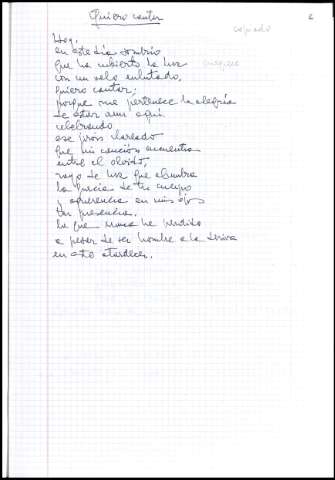 Quiero cantar
6
copiado
Hoy,
en este día sombrío
que ha cubierto la luz
con un velo enlutado,
quiero cantar;
porque me pertenece la alegría
de estar aun aquí
celebrando
ese girón clareado
que mi canción encuentra
entre el olvido,
rayo de luz que alumbra
la gracia de tu cuerpo
y aparencia en mis ojos
tu presencia.
La que nunca he perdido
a pesar de ser hombre a la deriva
en este atardecer.